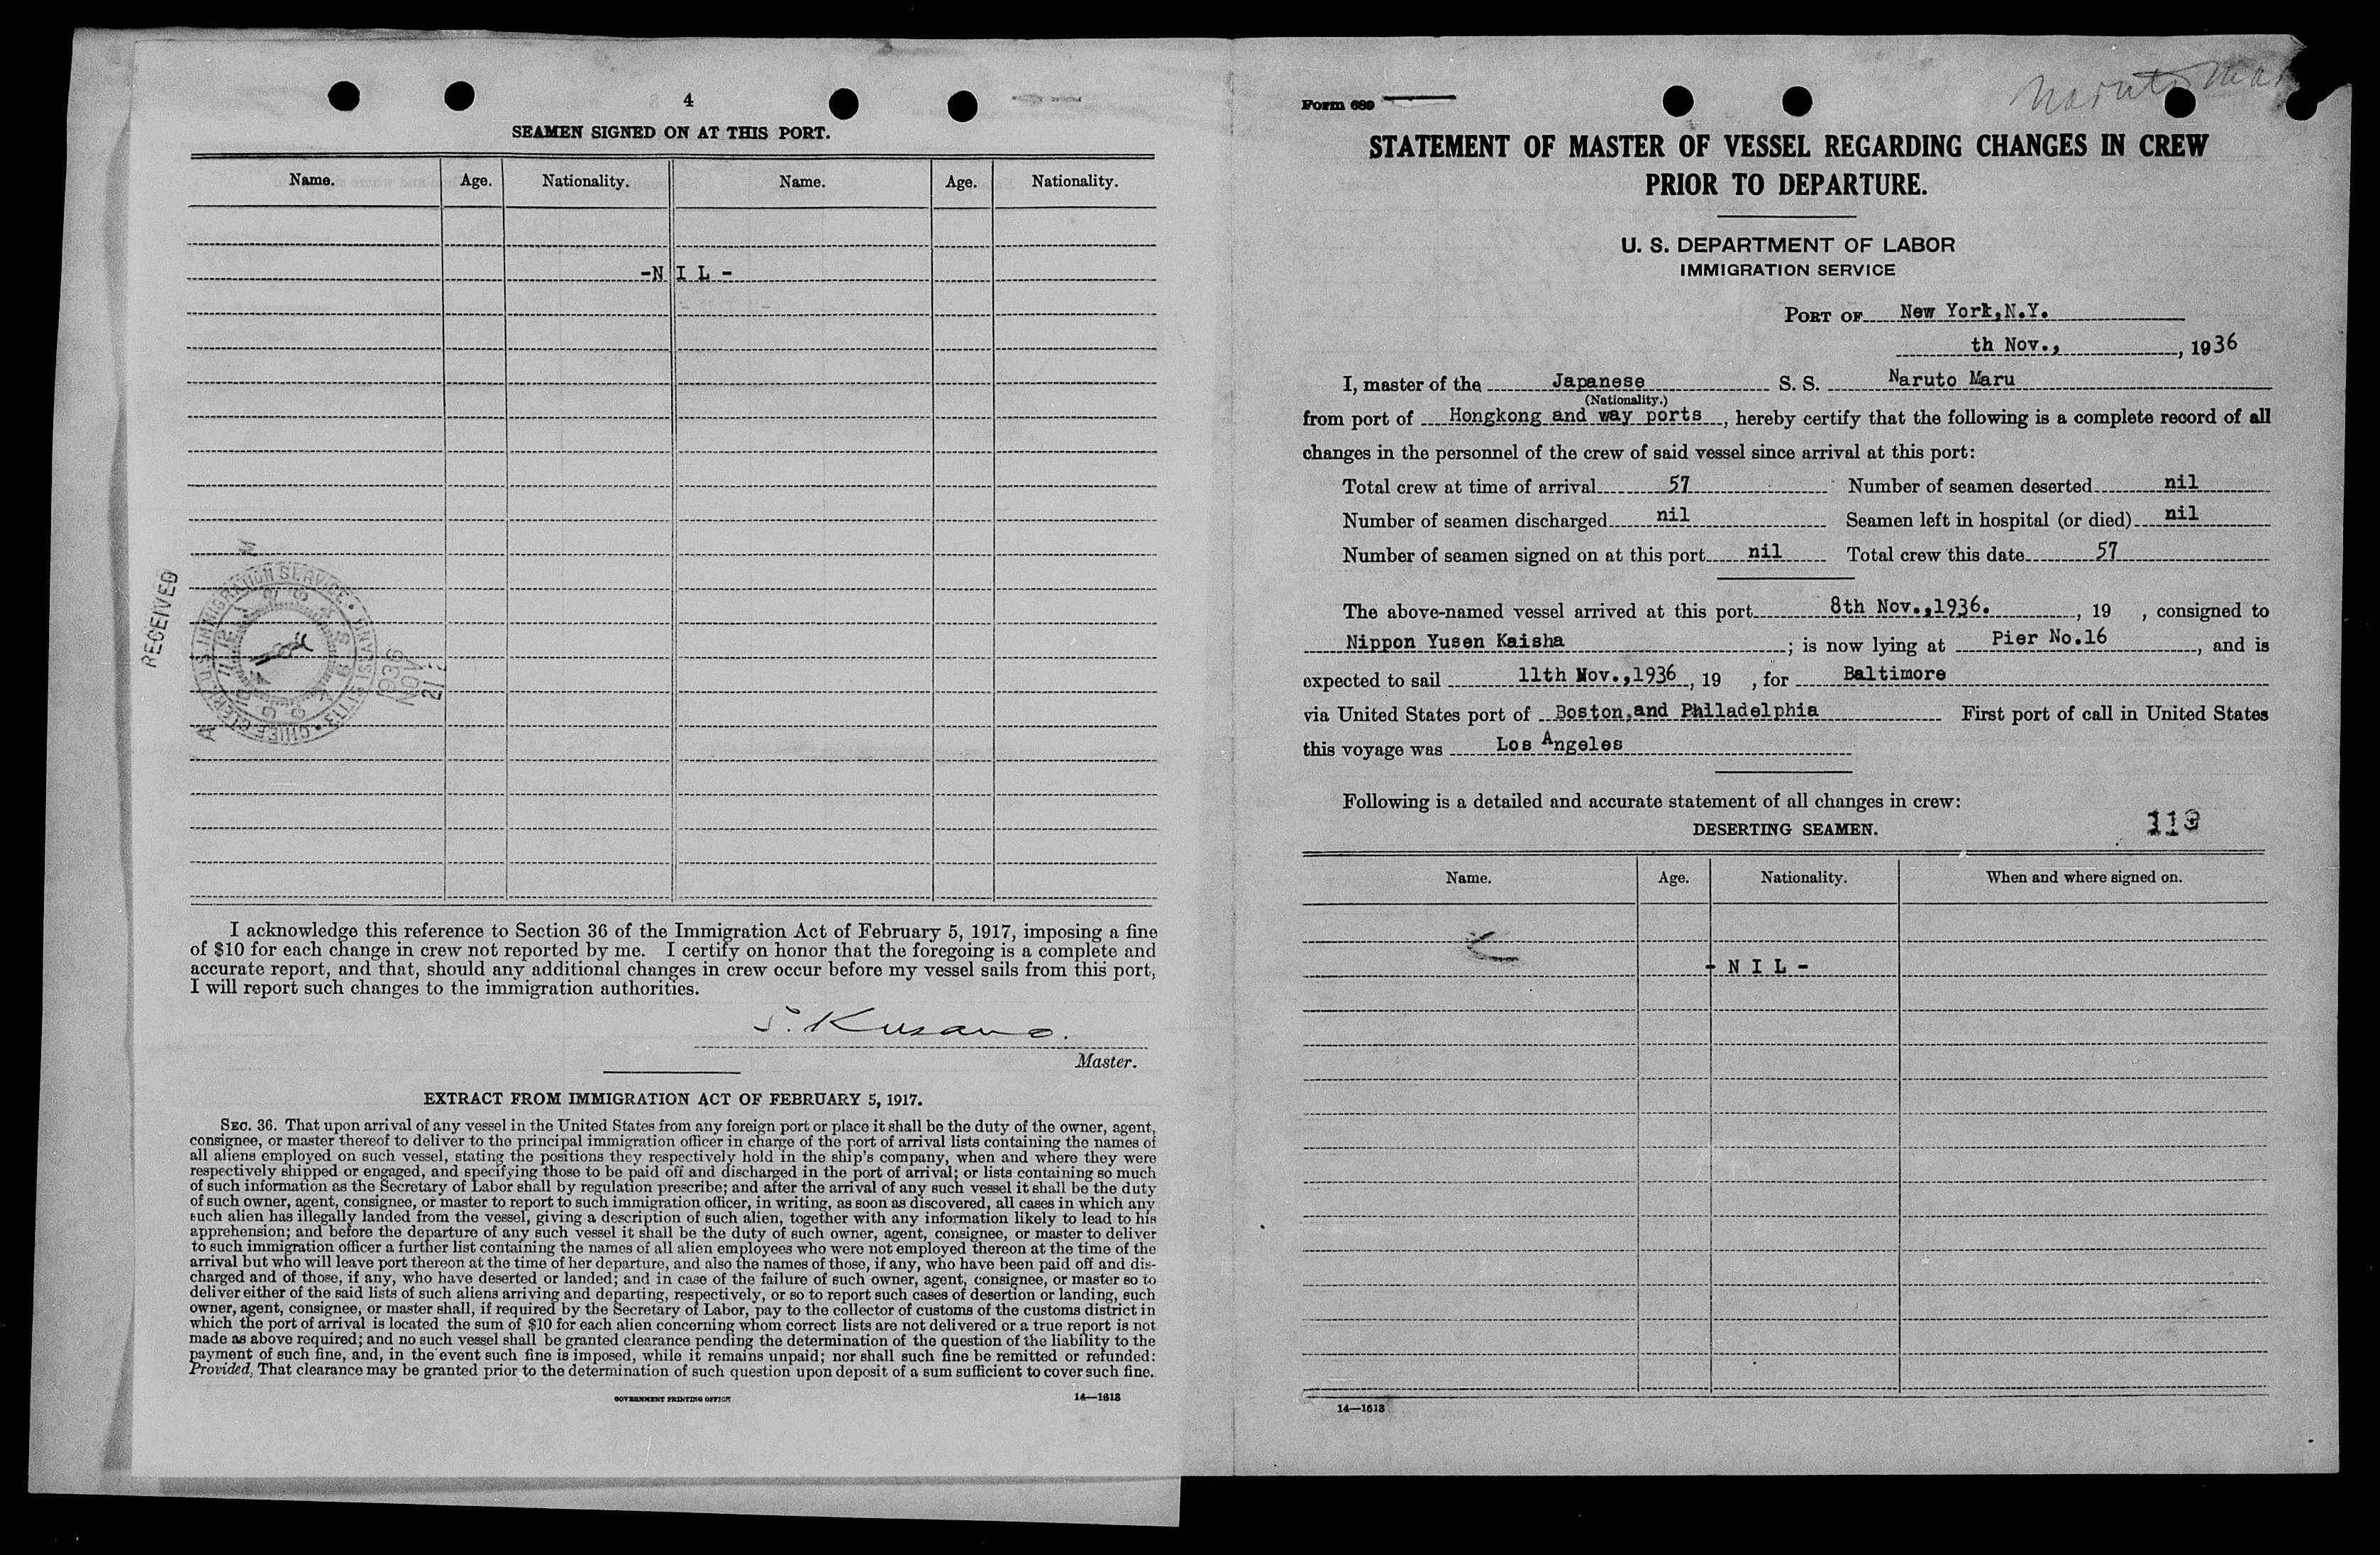 4
SEAMEN SIGNED ON AT THIS PORT.
Name. Age. Nationality. Name. Age. Nationality.
-N I L -
RECEIVED
U.S. IMMIGRATION SERVICE
CHIEF CLERK
ELLIS ISLAND
1936
NOV
I acknowledge this reference to Section 36 of the Immigration Act of February 5, 1917, imposing a fine
of $10 for each change in crew not reported by me. I certify on honor that the foregoing is a complete and
accurate report, and that, should any additional changes in crew occur before my vessel sails from this port,
I will report such changes to the immigration authorities.
S. Kusano.
Master.
EXTRACT FROM IMMIGRATION ACT OF FEBRUARY 5, 1917.
SEC. 36. That upon arrival of any vessel in the United States from any foreign port or place it shall be the duty of the owner, agent,
consignee, or master thereof to deliver to the principal immigration officer in charge of the port of arrival lists containing the names of
all aliens employed on such vessel, stating the positions they respectively hold in the ship's company, when and where they were
respectively shipped or engaged, and specifying those to be paid off and discharged in the port of arrival; or lists containing so much
of such information as the Secretary of Labor shall by regulation prescribe; and after the arrival of any such vessel it shall be the duty
of such owner, agent, consignee, or master to report to such immigration officer, in writing, as soon as discovered, all cases in which any
such alien has illegally landed from the vessel, giving a description of such alien, together with any information likely to lead to his
apprehension; and before the departure of any such vessel it shall be the duty of such owner, agent, consignee, or master to deliver
to such immigration officer a further list containing the names of all alien employees who were not employed thereon at the time of the
arrival but who will leave port thereon at the time of her departure, and also the names of those, if any, who have been paid off and dis-
charged and of those, if any, who have deserted or landed; and in case of the failure of such owner, agent, consignee, or master so to
deliver either of the said lists of such aliens arriving and departing, respectively, or so to report such cases of desertion or landing, such
owner, agent, consignee, or master shall, if required by the Secretary of Labor, pay to the collector of customs of the customs district in
which the port of arrival is located the sum of $10 for each alien concerning whom correct lists are not delivered or a true report is not
made as above required; and no such vessel shall be granted clearance pending the determination of the question of the liability to the
payment of such fine, and, in the event such fine is imposed, while it remains unpaid; nor shall such fine be remitted or refunded:
Provided, That clearance may be granted prior to the determination of such question upon deposit of a sum sufficient to cover such fine.
GOVERNMENT PRINTING OFFICE 14—1613
Naruto Mar
Form 689
STATEMENT OF MASTER OF VESSEL REGARDING CHANGES IN CREW
PRIOR TO DEPARTURE.
U. S. DEPARTMENT OF LABOR
IMMIGRATION SERVICE
PORT OF New York,N.Y.
th Nov., , 1936
I, master of the Japanese S. S. Naruto Maru
(Nationality.)
from port of Hongkong and way ports, hereby certify that the following is a complete record of all
changes in the personnel of the crew of said vessel since arrival at this port:
Total crew at time of arrival 57 Number of seamen deserted nil
Number of seamen discharged nil Seamen left in hospital (or died) nil
Number of seamen signed on at this port nil Total crew this date 57
The above-named vessel arrived at this port 8th Nov.,1936. , 19 , consigned to
Nippon Yusen Kaisha ; is now lying at Pier No.16 , and is
expected to sail 11th Nov.,1936 , 19 , for Baltimore
via United States port of Boston,and Philadelphia First port of call in United States
this voyage was Los Angeles
Following is a detailed and accurate statement of all changes in crew:
DESERTING SEAMEN.
Name. Age. Nationality. When and where signed on.
- N I L -
14—1613